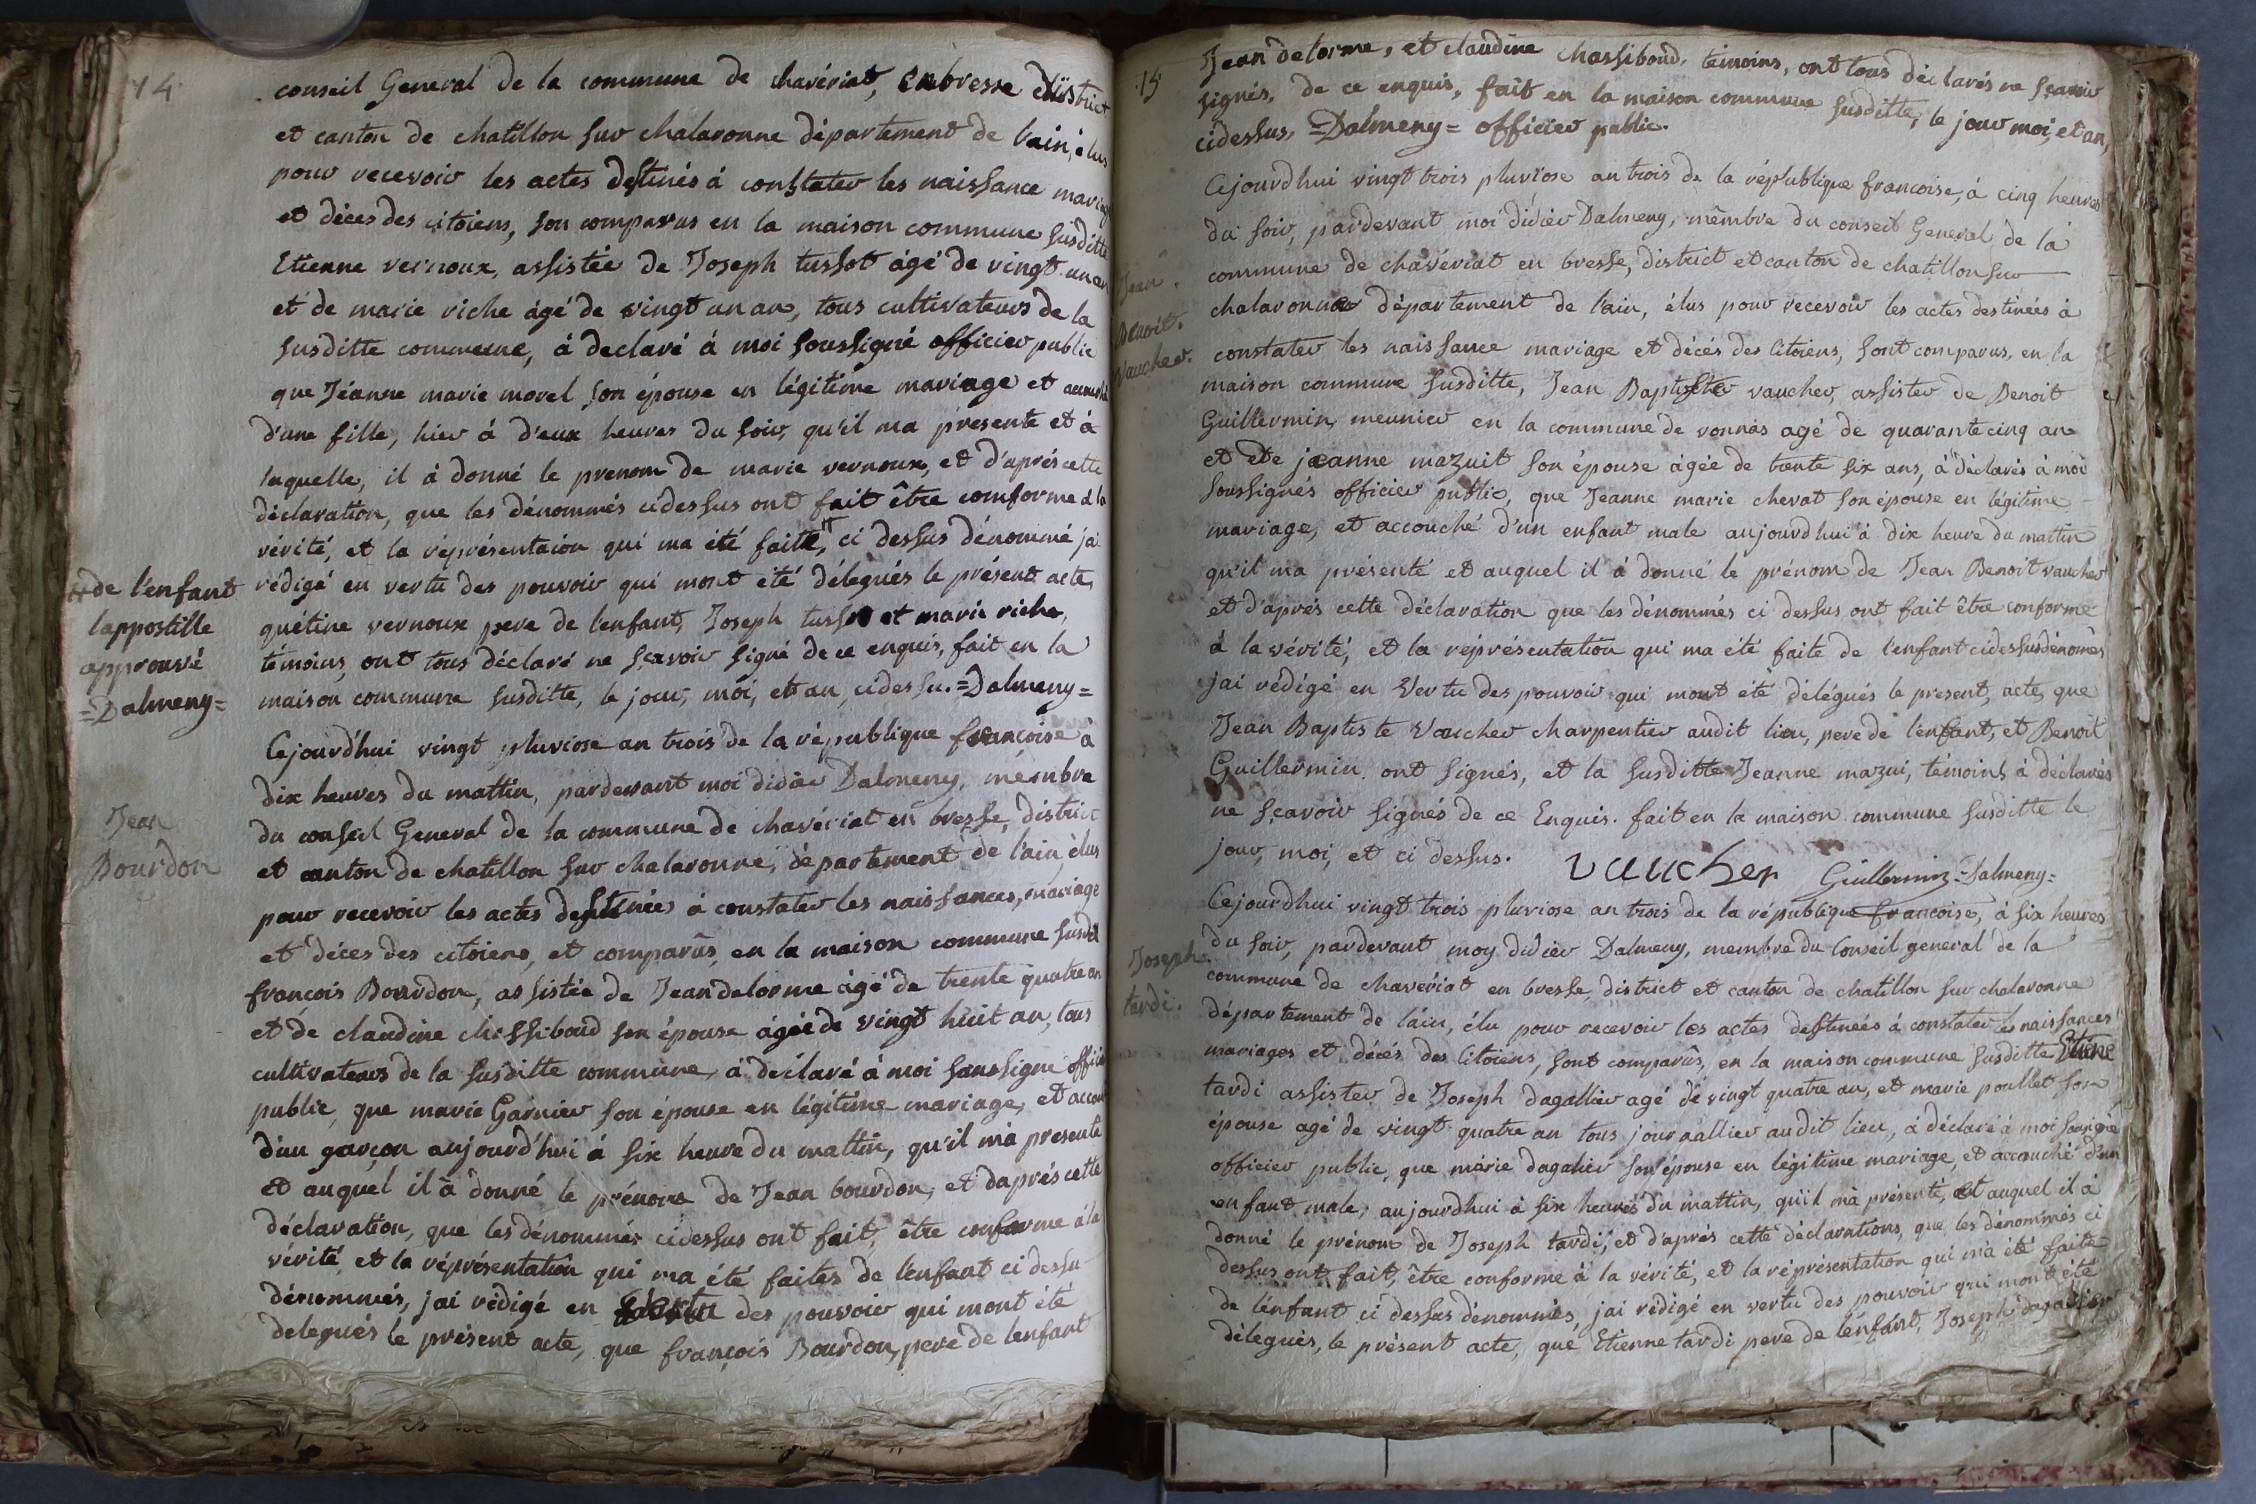 14
conseil General de la commune de chavériat, en bresse district
et canton de chatillon sur chalaronne département de l'ain, élus
pour recevoir les actes destinés à constater les naissance mariage
et décès des citoiens, son comparus en la maison commune susditte
Etienne vernoux, assistée de Joseph tussot âgé de vingt un an
et de marie riche âgé de vingt un an, tous cultivateurs de la
susditte commune, à declaré à moi soussigné officier public
que Jéanne marie morel son épouse en légitime mariage et accouché
d'une fille, hier à d'eux heures du soir, qu'il ma présente et à
laquelle, il à donné le prenom de marie vernoux, et d'après cette
déclaration, que les dénommés cidessus ont fait être comforme à la
vérité, et la réprésentaion qui ma été faite, # ci dessus dénommé jai
rédigé en vertu des pouvoir qui mont été délegués le présent acte,
# de l'enfant
lappostille
approuvé
=Dalmeny=
quétine vernoux pere de l'enfant, Joseph tussot et marie riche,
témoins, ont tous déclaré ne sçavoir signé de ce enquis, fait en la
maison commune susditte, le jour, moi, et an cidessu. =Dalmeny=
Jean
Bourdon
Cejourd'hui vingt pluviose an trois de la république francoise à
dix heures du mattin, pardevant moi didier Dalmeny, mémbre
du conseil General de la commune de chavériat en bresse, district
et canton de chatillon sur chalaronne, département de l'ain, élus
pour recevoir les actes destinées à constater les naissances, mariage
et décès des citoiens, et comparus, en la maison commune susditte
françois Bourdon, assistée de Jean delorme âgé de trente quatre an
et de claudine chassiboud son épouse âgée de vingt huit an, tous
cultivateurs de la susditte commune, à déclaré à moi soussigné officier
public, que marie Garnier son épouse en légitime mariage, et accouché
d'un garçon aujourd'hui à six heure du mattin, qu'il m'a presenté
et auquel il à donné le prénom de Jean bourdon, et daprés cette
déclaration, que les dénommés cidessus ont fait, être conforme à la
vérité, et la réprésentation qui ma été faites de l'enfant ci dessu
dénommés, jai rédigé en vertu des pouvoir qui mont été
delegués le présent acte, que françois Bourdon, pere de lenfant
15
Jean delorme, et claudine chassiboud, témoins, ont tous déclarés ne sçavoir
signés, de ce enquis, fait en la maison commune susditte, le jour moi, et an,
cidessus, =Dalmeny= officier public.
Jean
Benoit
Vaucher.
Cejourdhui vingt trois pluviose an trois de la république francoise, à cinq heures
du soir, pardevant moi didier Dalmeny, mémbre du conseil General de la
commune de chavériat en bresse, district et canton de chatillon sur
chalaronne département de l'ain, élus pour recevoir les actes destinées à
constater les naissance mariage et décès des Citoiens, sont comparus, en la
maison commune susditte, Jean Baptiste vaucher, assister de Benoit
Guillermin, meunier en la commune de vonnas agé de quarante cinq an
et de jeanne mazuit son épouse âgée de trente six ans, à déclarés à moi
soussignés officier public, que Jeanne marie chevat son épouse en légitime
mariage, et accouché d'un enfant male aujourdhui à dix heure du mattin
qu'il ma présenté et auquel il à donné le prénom de Jean Benoit vaucher
et d'aprés cette déclaration que les dénommés ci dessus ont fait être conforme
à la vérité, et la réprésentation qui ma été faite de l'enfant cidessus dénomés
jai rédigé en vertu des pouvoir qui mont été délégués le present, acte, que
Jean Baptiste Vaucher charpentier audit lieu, pere de l'enfant, et Benoit
Guillermin ont signés, et la susditte Jeanne mazui, témoins à déclarés
ne sçavoir signés de ce Enquis. fait en la maison commune susditte le
jour, moi, et ci dessus. vaucher Guillermin =Dalmeny=
Joseph
tardi.
Cejourdhui vingt trois pluviose an trois de la république francoise, à six heures
du soir, pardevant moy didier Dalmeny, membre du Conseil general de la
commune de chavériat en bresse, district et canton de chatillon sur chalaronne
département de l'ain, élu pour recevoir les actes destinées à constater les naissances
mariages et décès des Citoiens, sont comparus, en la maison commune susditte Etiene
tardi assister de Joseph dagallier agé de vingt quatre an, et marie poullet son
épouse agé de vingt quatre an tous journallier audit lieu, à déclaré à moi sousigné
officier public, que marie dagalier son épouse en légitime mariage, et accouché d'un
enfant male, aujourdhui à six heures du mattin, quil m'a présenté, et auquel il à
donné le prénom de Joseph tardi, et d'après cette déclarations, que les dénommés ci
dessus ont fait, être conforme à la vérité, et la réprésentation qui m'a été faite
de l'enfant ci dessus dénommés, jai rédigé en vertu des pouvoir qui mont été
délegués, le présent acte, que Etienne tardi pere de lenfant, Joseph dagalier